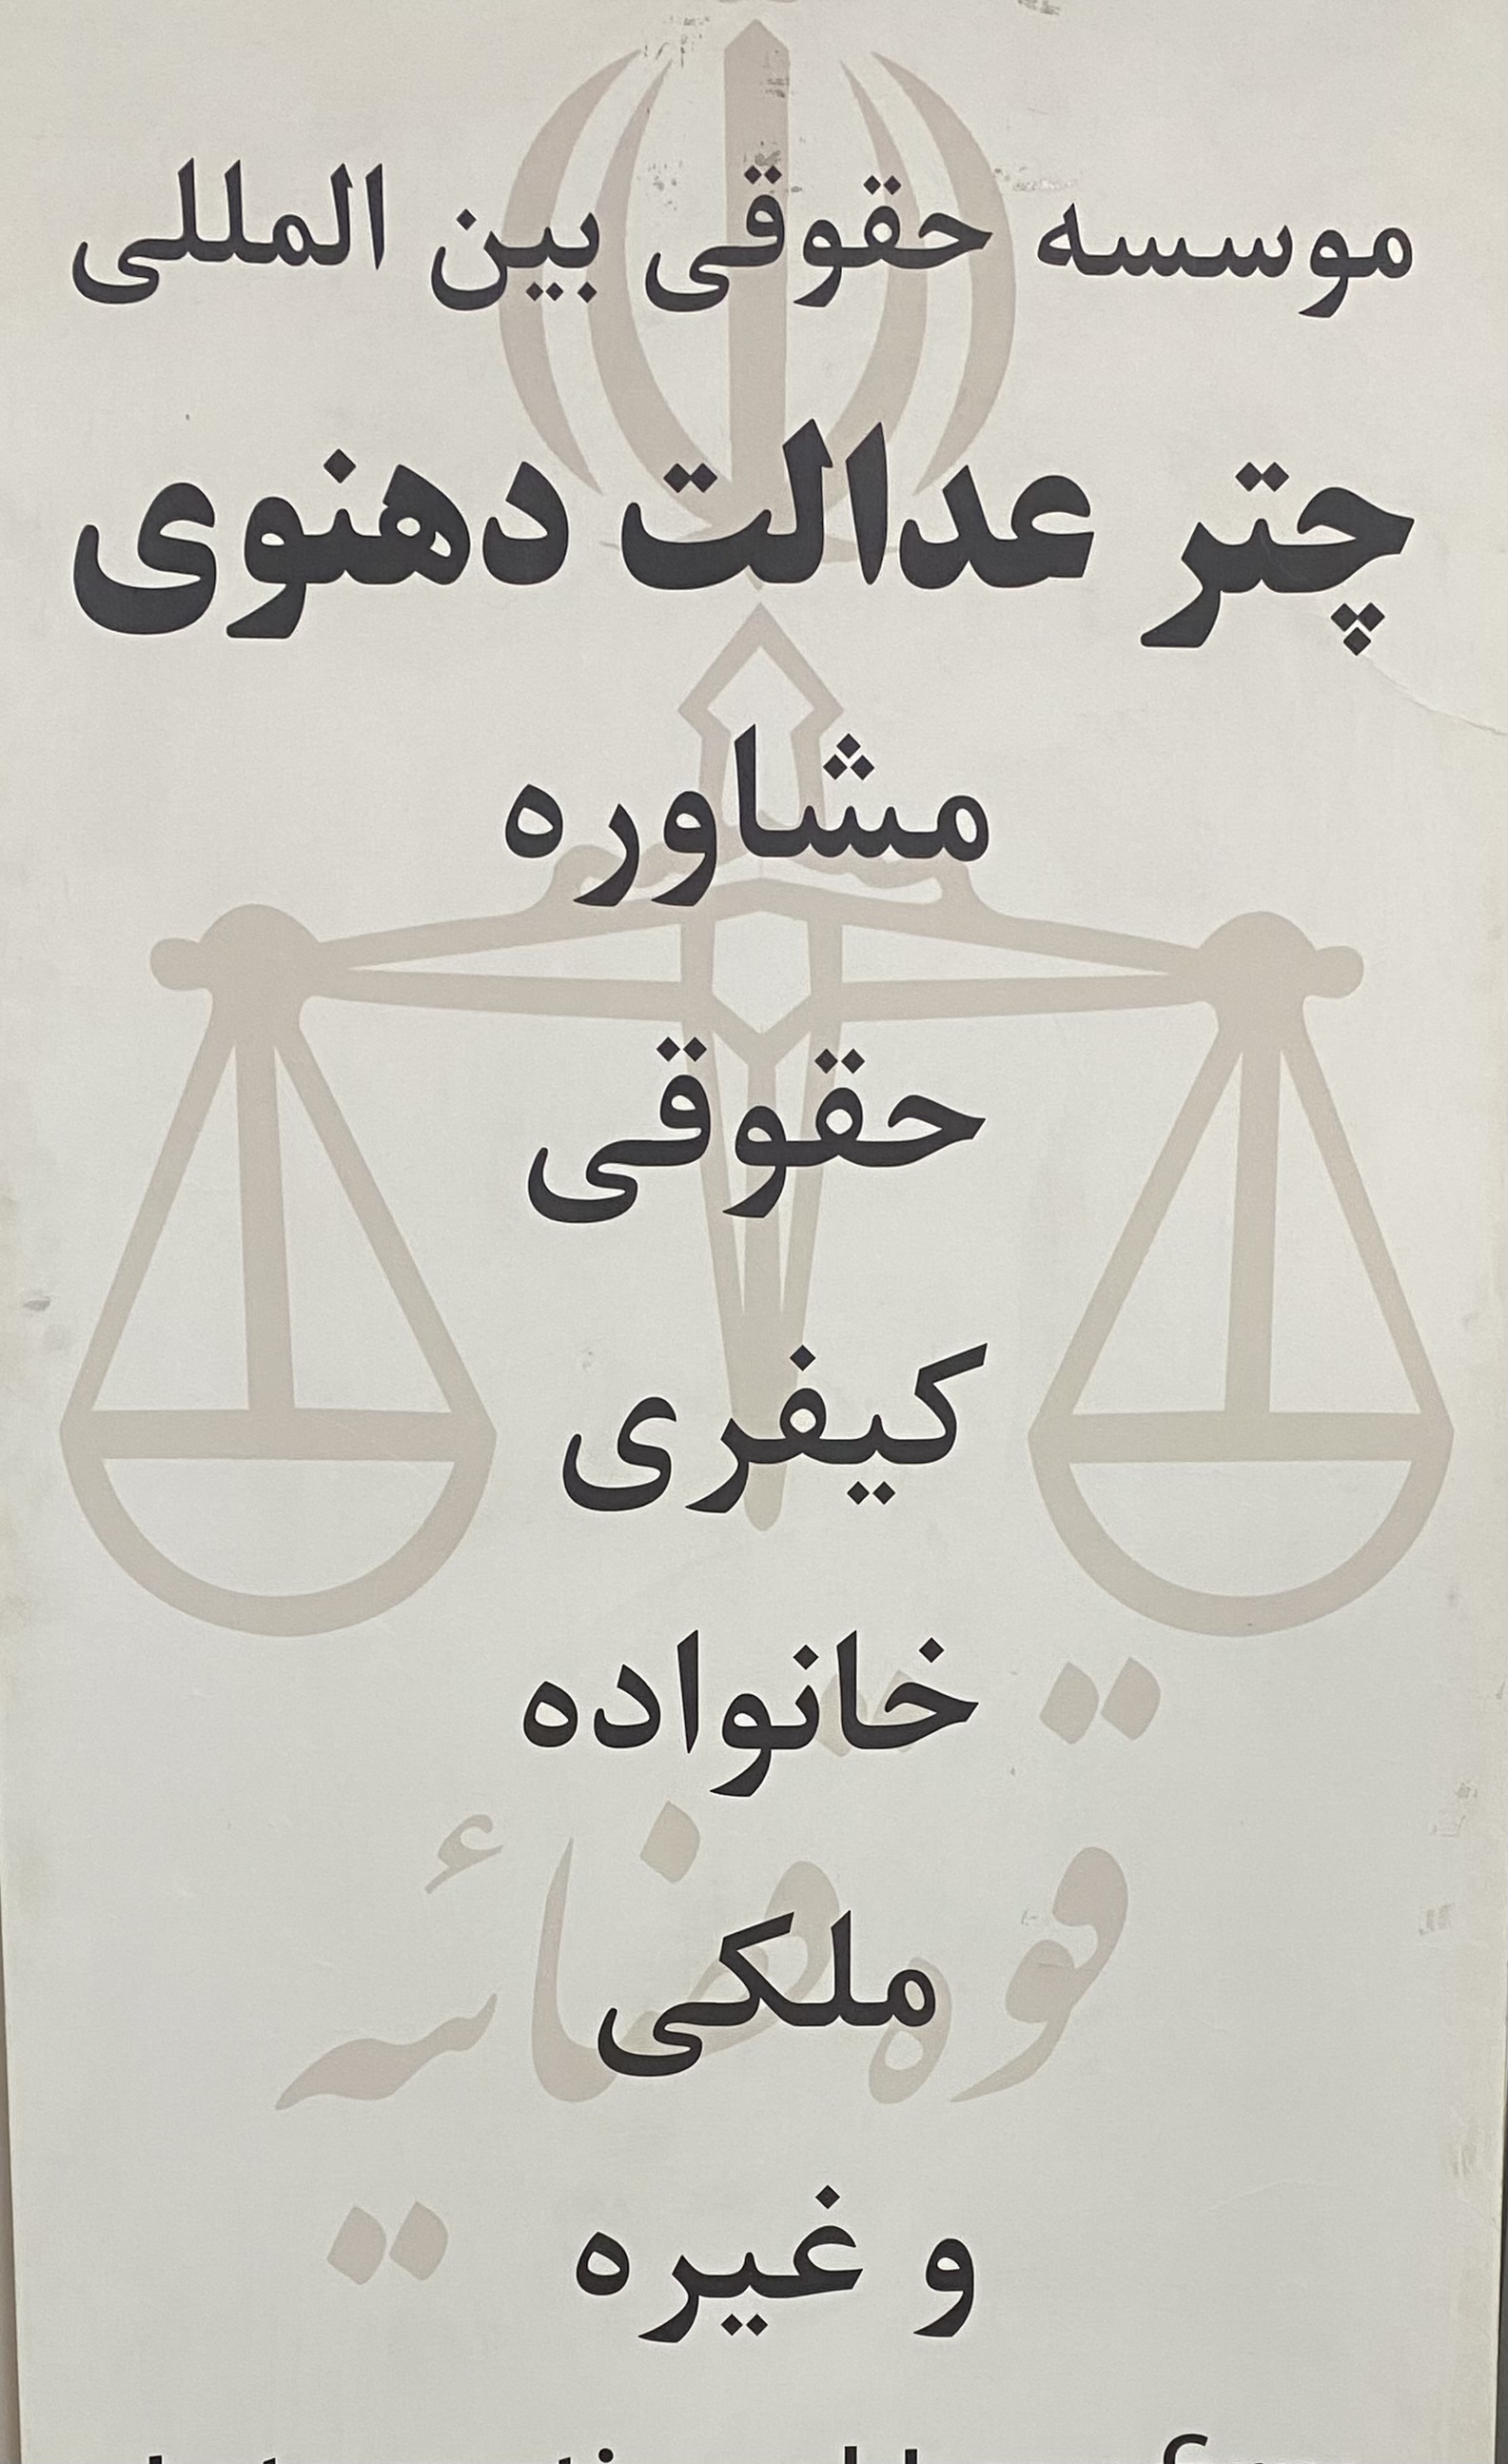 موسسه حقوقی بین المللی
چتر عدالت دهنوی
مشاوره
حقوقی
کیفری
خانواده
قوه قضائیه
ملکی
و غیره